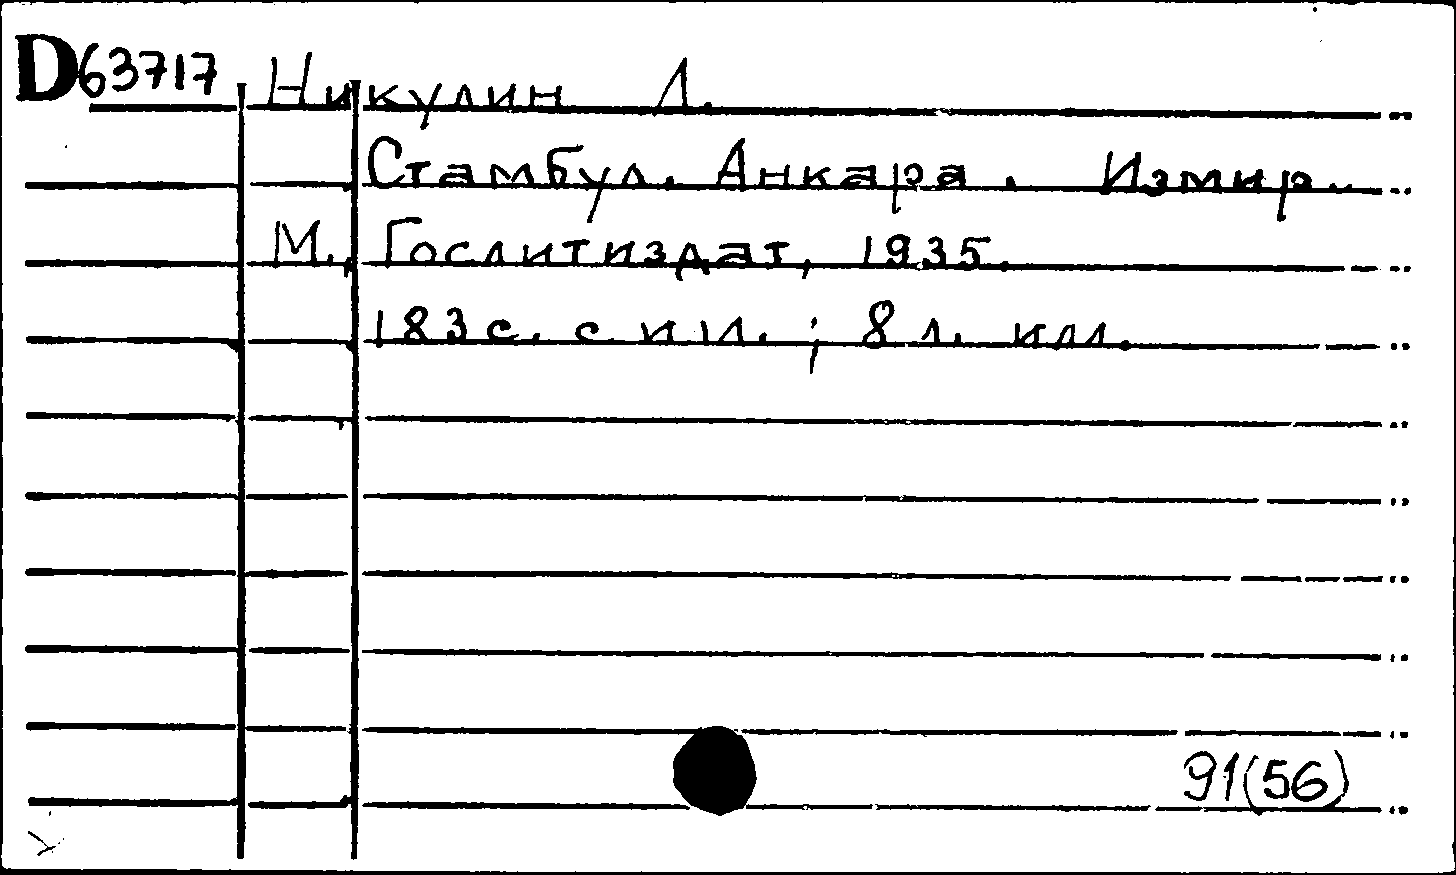 D63717 Никулин Л.
Стамбул. Анкара. Измир.
М., Гослитиздат, 1935.
183 с. с ил.; 8 л. илл.
91(56)